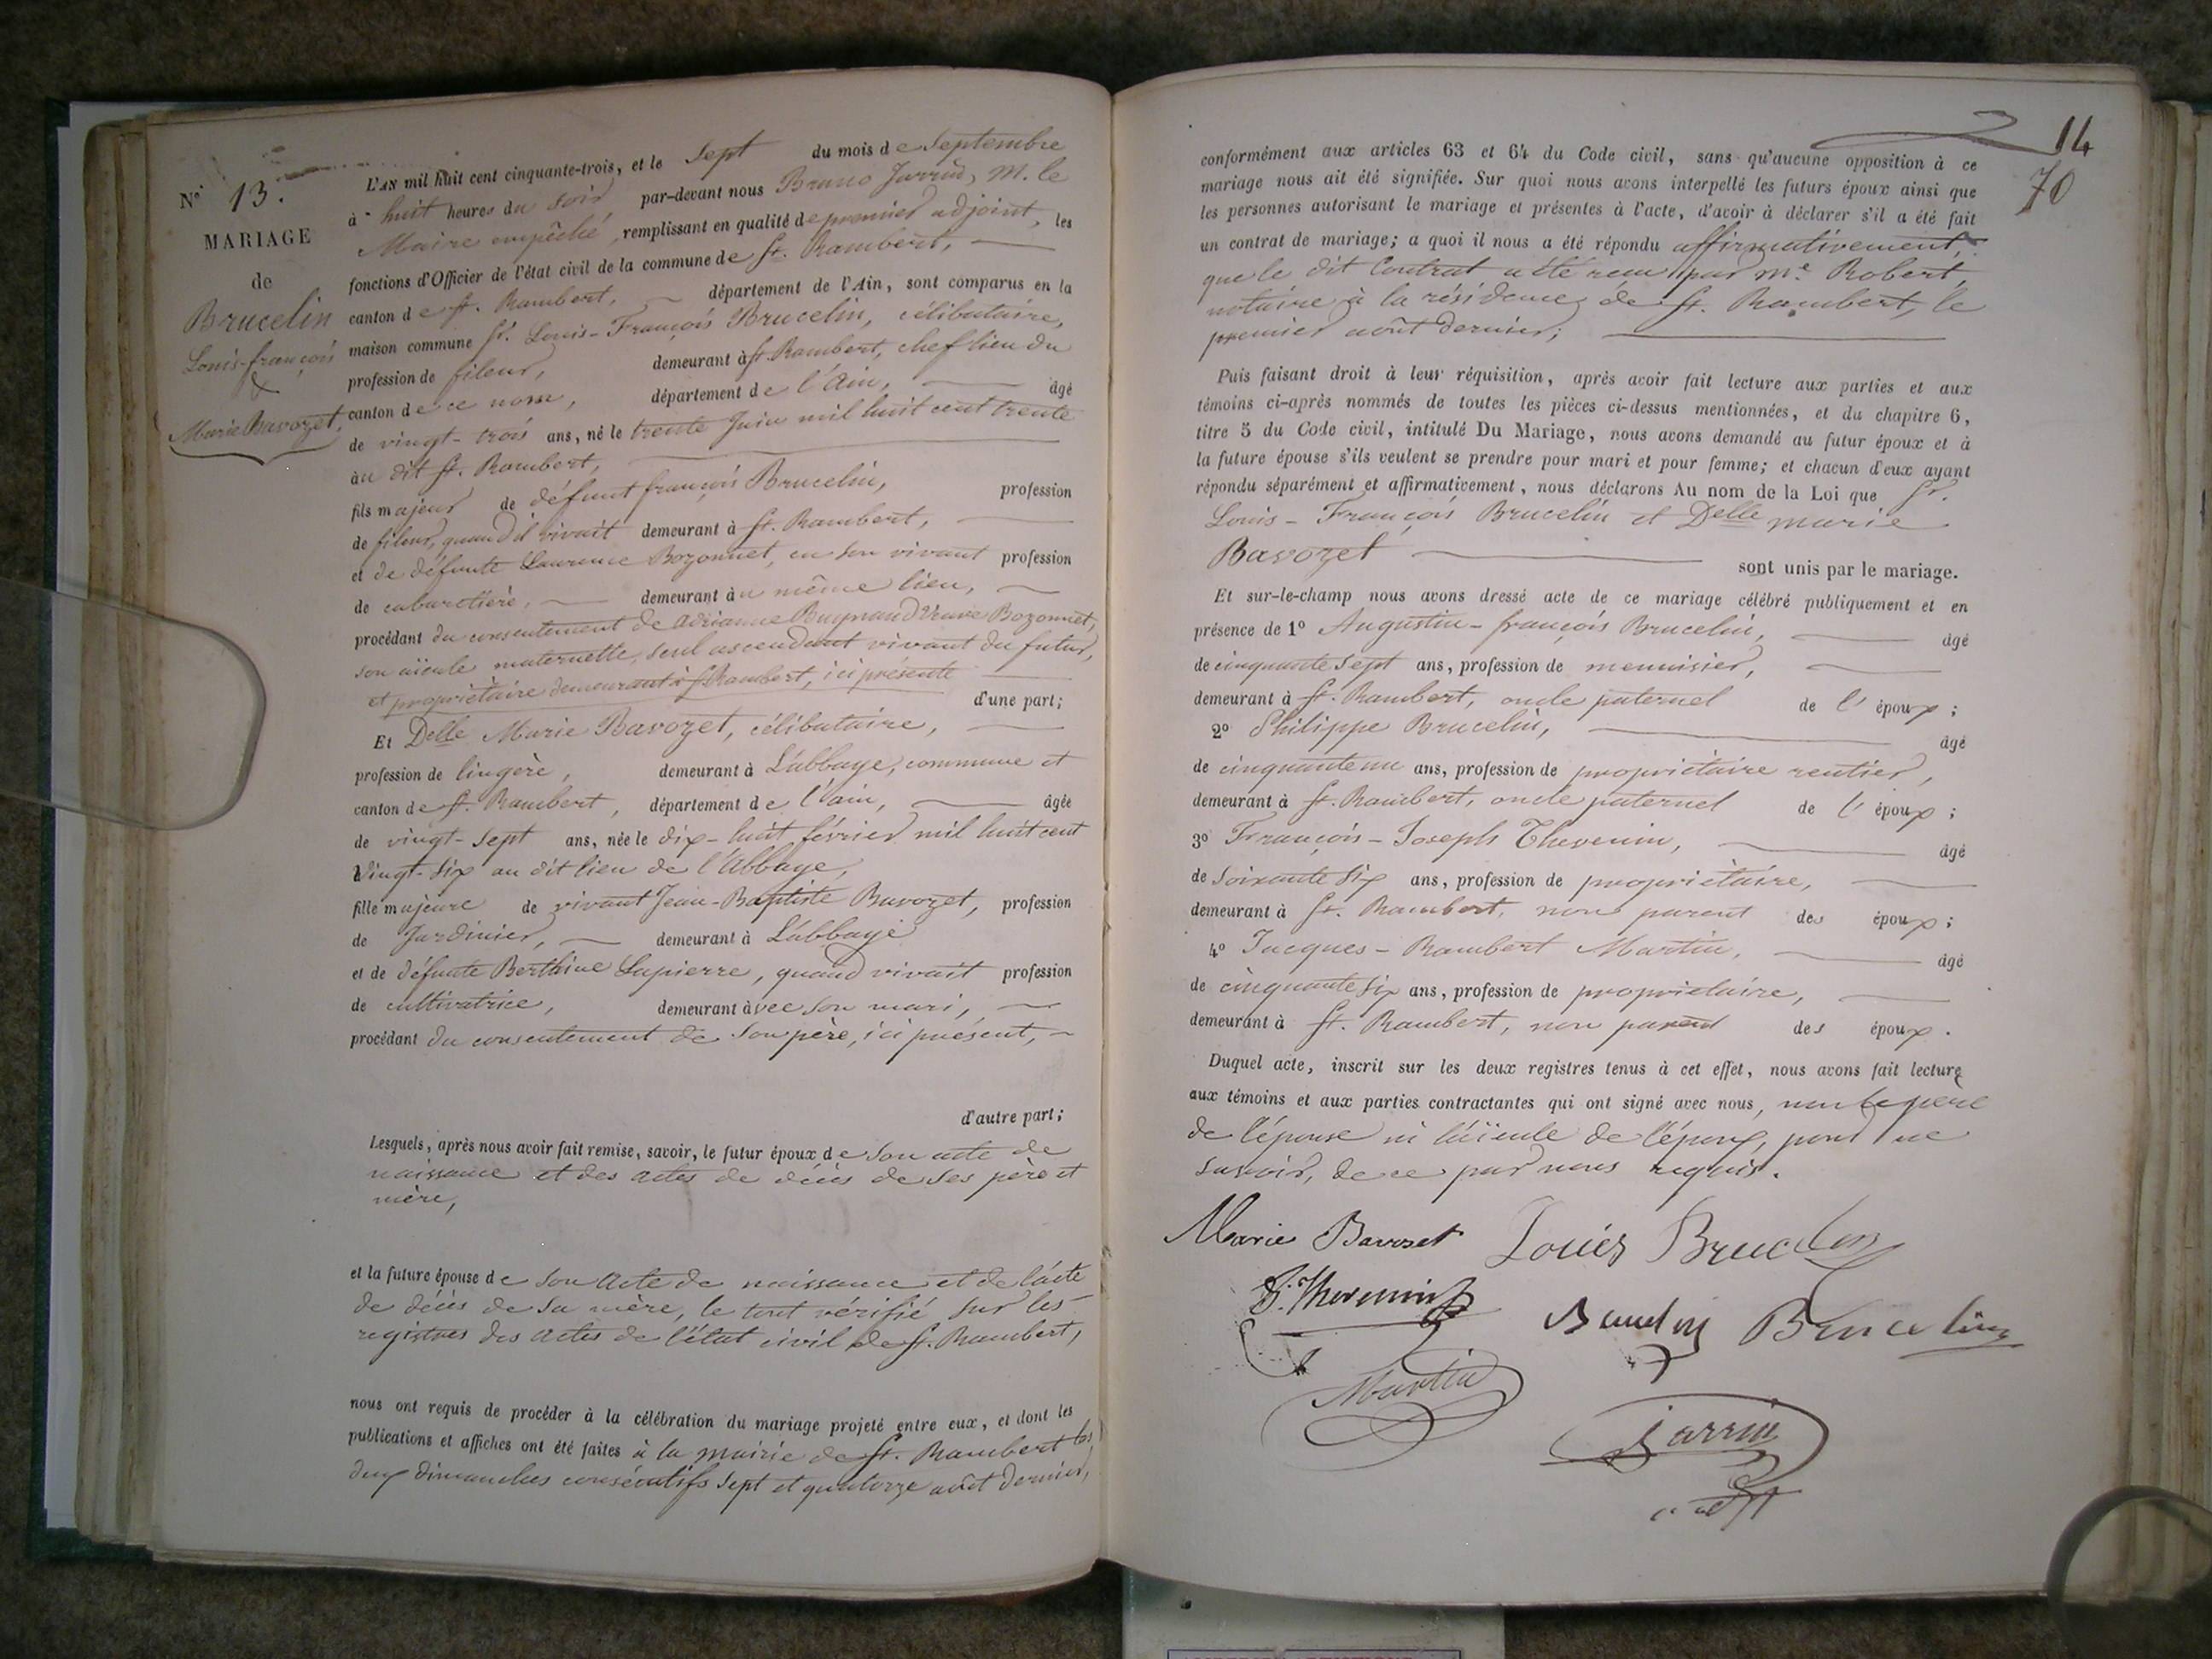 N° 13.
MARIAGE
de
Brucelin
Louis-françois
&
Marie Bavozet,
L'AN mil huit cent cinquante-trois, et le Sept du mois de Septembre
à huit heures du soir par-devant nous Bruno Jarrin, M. le
Maire empêché, remplissant en qualité de premier adjoint, les
fonctions d'Officier de l'état civil de la commune de St. Rambert,
canton de St. Rambert, département de l'Ain, sont comparus en la
maison commune Sr. Louis-François Brucelin, célibataire,
profession de fileur, demeurant à St. Rambert, chef lieu du
canton de ce nom, département de l'Ain, âgé
de vingt-trois ans, né le trente Juin mil huit cent trente
au dit St. Rambert,
fils majeur de défunt françois Brucelin, profession
de fileur, quand il vivait demeurant à St. Rambert,
et de défunte Laurence Bozonnet, en son vivant profession
de cabaretière, demeurant au même lieu,
procédant du consentement de Adrianne Buynaud Veuve Bozonnet,
son aïeule maternelle, seul ascendant vivant du futur,
et propriétaire demeurant à St. Rambert, ici présente
d'une part;
Et Delle Marie Bavozet, célibataire,
profession de lingère, demeurant à L'abbaye, commune et
canton de St. Rambert, département de l'ain, âgée
de vingt-sept ans, née le dix-huit février mil huit cent
Vingt-six au dit lieu de l'Abbaye,
fille majeure de vivant Jean-Baptiste Bavozet, profession
de Jardinier, demeurant à L'abbaye
et de défunte Berthine Lapierre, quand vivait profession
de cultivatrice, demeurant avec son mari,
procédant du consentement de Son père, ici présent,
d'autre part;
Lesquels, après nous avoir fait remise, savoir, le futur époux de Son acte de
naissance et des actes de décès de ses père et
mère,
et la future épouse de Son acte de naissance et de l'acte
de décès de sa mère, le tout vérifié sur les
registres des actes de l'état civil de St. Rambert,
nous ont requis de procéder à la célébration du mariage projeté entre eux, et dont les
publications et affiches ont été faites à la mairie de St. Rambert les
deux dimanches consécutifs Sept et quatorze août dernier,
14
70
conformément aux articles 63 et 64 du Code civil, sans qu'aucune opposition à ce
mariage nous ait été signifiée. Sur quoi nous avons interpellé les futurs époux ainsi que
les personnes autorisant le mariage et présentes à l'acte, d'avoir à déclarer s'il a été fait
un contrat de mariage; a quoi il nous a été répondu affirmativement,
que le dit Contrat a été reçu par Me. Robert,
notaire à la résidence de St. Rambert, le
premier août dernier;
Puis faisant droit à leur réquisition, après avoir fait lecture aux parties et aux
témoins ci-après nommés de toutes les pièces ci-dessus mentionnées, et du chapitre 6,
titre 5 du Code civil, intitulé Du Mariage, nous avons demandé au futur époux et à
la future épouse s'ils veulent se prendre pour mari et pour femme; et chacun d'eux ayant
répondu séparément et affirmativement, nous déclarons Au nom de la Loi que Sr.
Louis-François Brucelin et Delle marie
Bavozet sont unis par le mariage.
Et sur-le-champ nous avons dressé acte de ce mariage célébré publiquement et en
présence de 1° Augustin-françois Brucelin, âgé
de cinquante Sept ans, profession de menuisier,
demeurant à St. Rambert, oncle paternel de l'époux;
2° Philippe Brucelin, âgé
de cinquante un ans, profession de propriétaire rentier,
demeurant à St. Rambert, oncle paternel de l'époux;
3° François-Joseph Thevenin, âgé
de Soixante Six ans, profession de propriétaire,
demeurant à St. Rambert, non parent des époux;
4° Jacques-Rambert Martin, âgé
de cinquante six ans, profession de propriétaire,
demeurant à St. Rambert, non parent des époux.
Duquel acte, inscrit sur les deux registres tenus à cet effet, nous avons fait lecture
aux témoins et aux parties contractantes qui ont signé avec nous, non le père
de l'épouse ni l'aïeule de l'époux, pour ne
savoir, de ce par nous requis.
Marie Bavozet Louis Brucelin
f. Thevenin Brucelin
Martin
Jarrin